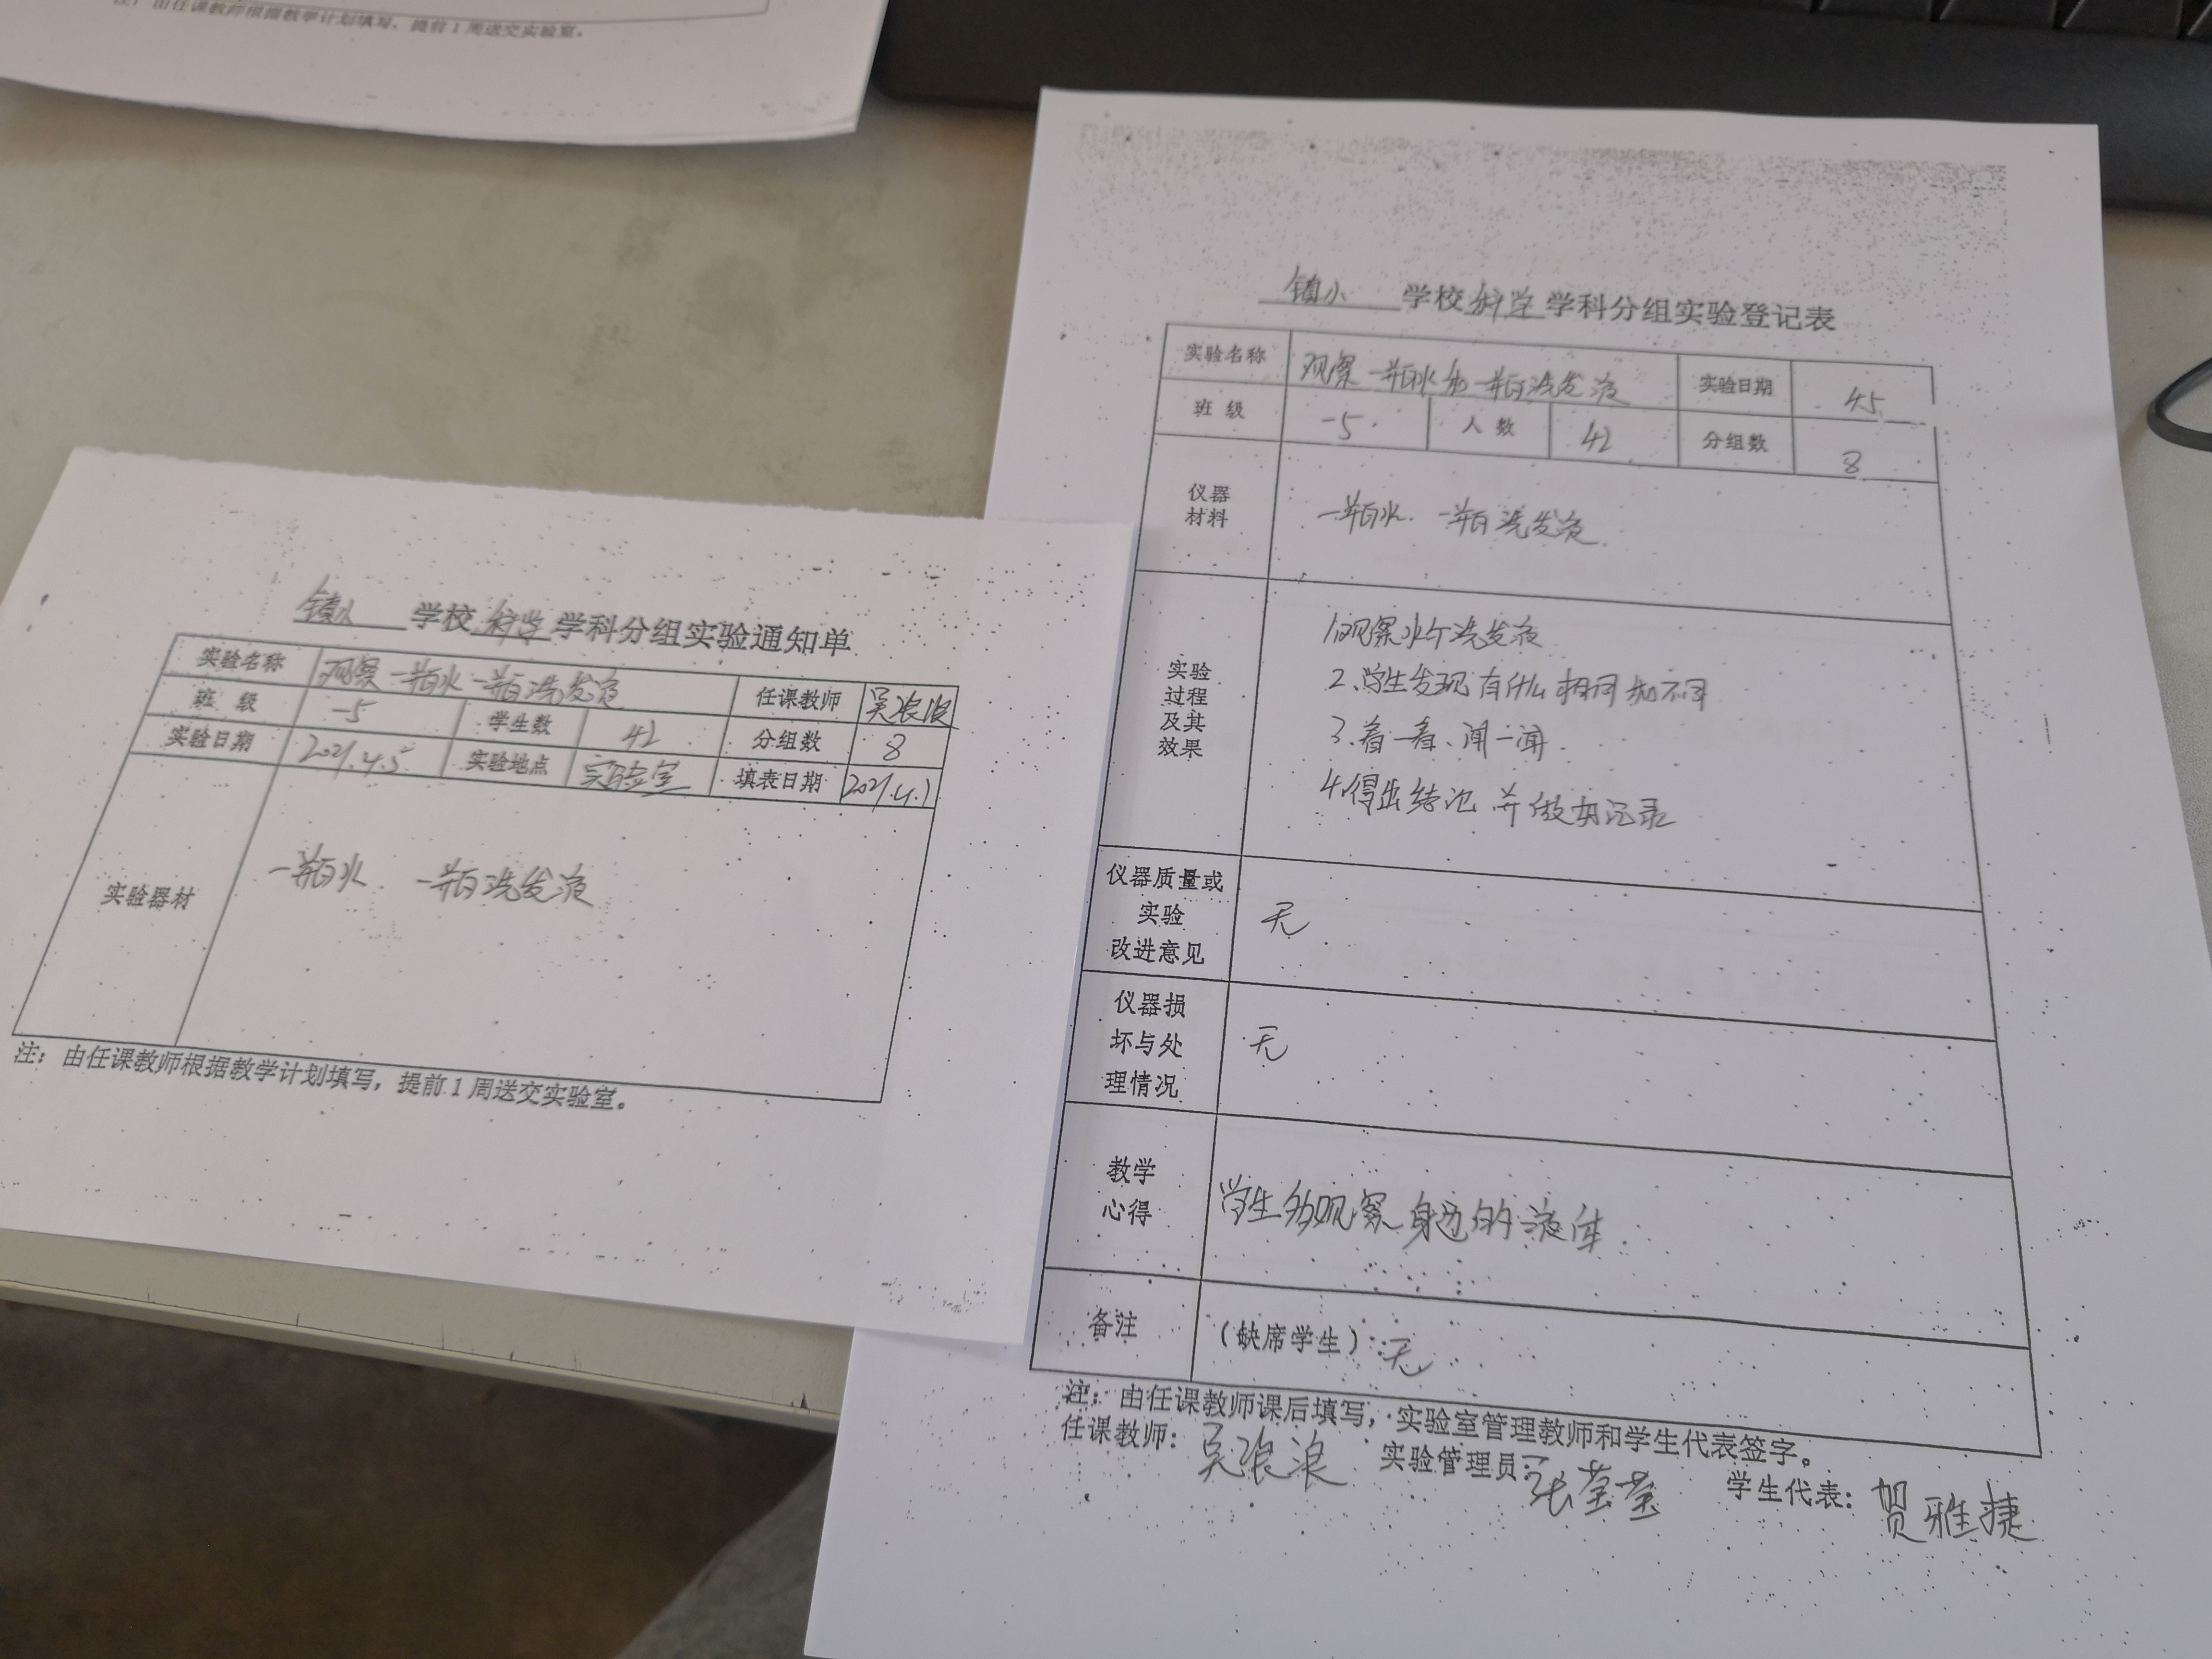 注：由任课教师根据教学计划填写，提前1周送交实验室。
镇小 学校 科学 学科分组实验通知单
实验名称 观察一瓶水一瓶洗发液 任课教师 吴浪浪
班 级 一5 学生数 42 分组数 8
实验日期 2021.4.5 实验地点 实验室 填表日期 2021.4.1
实验器材 一瓶水 一瓶洗发液
注：由任课教师根据教学计划填写，提前1周送交实验室。
镇小 学校 科学 学科分组实验登记表
实验名称 观察一瓶水和一瓶洗发液 实验日期 4.5
班 级 一5. 人 数 42 分组数 8
仪器
材料
一瓶水. 一瓶洗发液.
实验
过程
及其
效果
1.观察水个洗发液
2.学生发现有什么相同和不同
3.看一看、闻一闻.
4.得出结论并做好记录
仪器质量或
实验
改进意见
无
仪器损
坏与处
理情况
无
教学
心得
学生多观察身边的液体.
备注 （缺席学生）：无
注：由任课教师课后填写，实验室管理教师和学生代表签字。
任课教师：吴浪浪 实验管理员：张莹莹 学生代表：贺雅捷